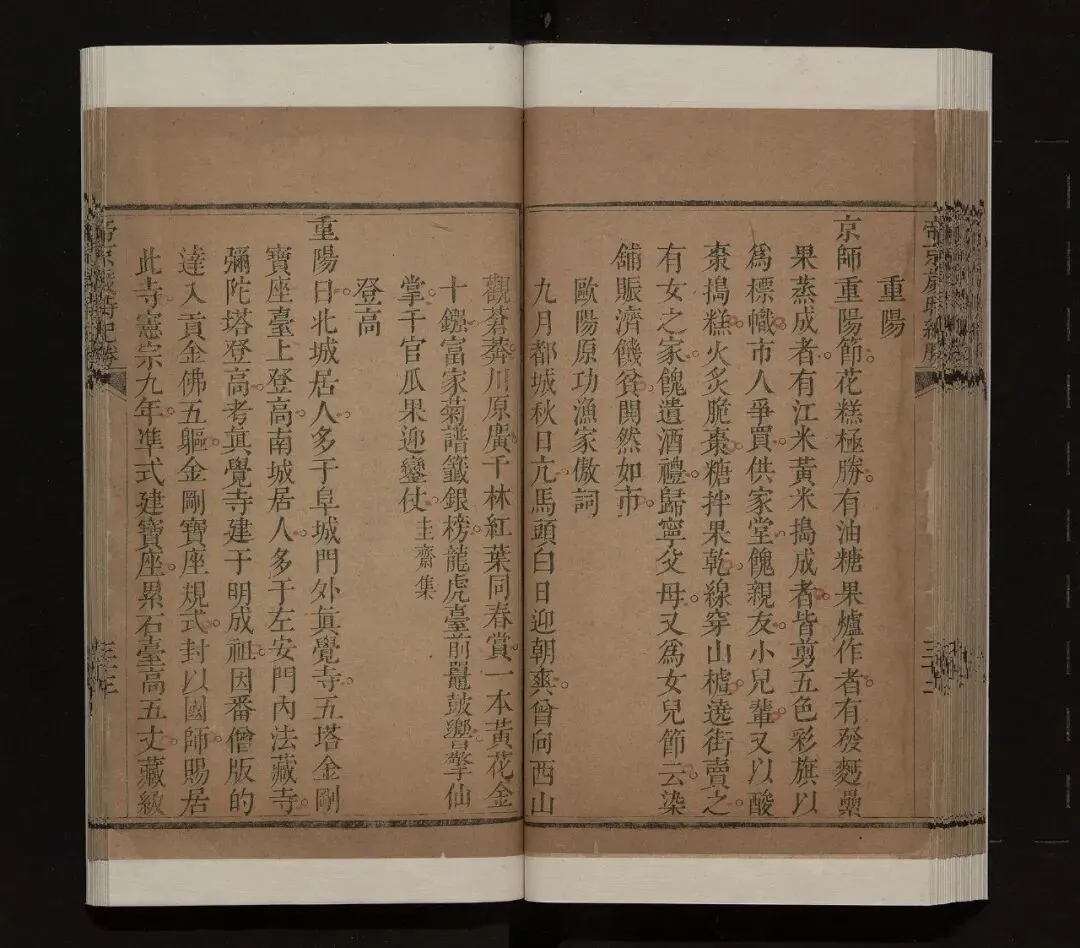 重陽
京師重陽節花糕極勝有油糖果爐作者有發麪纍
果蒸成者有江米黃米搗成者皆剪五色彩旗以
爲標幟市人爭買供家堂餽親友小兒輩又以酸
棗搗糕火炙脆棗糖拌果乾線穿山樝遶街賣之
有女之家餽遺酒禮歸寧父母又爲女兒節云染
舖賑濟饑貧閧然如市
歐陽原功漁家傲詞
九月都城秋日亢馬頭白日迎朝爽曾向西山
觀蒼莽川原廣千林紅葉同春賞一本黃花金
十鏹富家菊譜籤銀榜龍虎臺前鼉鼓響擎仙
掌千官瓜果迎鑾仗圭齋集
登高
重陽日北城居人多于阜城門外眞覺寺五塔金剛
寶座臺上登高南城居人多于左安門內法藏寺
彌陀塔登高考眞覺寺建于明成祖因番僧版的
達入貢金佛五軀金剛寶座規式封以國師賜居
此寺憲宗九年準式建寶座累石臺高五丈藏級
帝京歲時紀勝
三十三